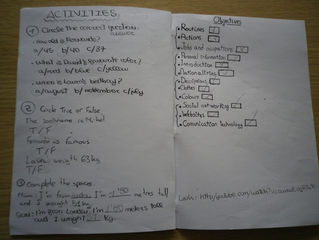 ACTIVITIES
① Circle the correct question.
answer
• How old is Fernando?
a/45 b/40 c/37
• What is David's favourite color?
a/red b/blue c/yellow
• When is Laura's birthday?
a/August b/november c/July
② Circle True or False
T/F
Fernando is famous
T/F
Laura weigth 63kg
T/F
③ Complete the spaces.
meters tall
and I weight 51 kg.
I'm from London I'm 1'80 meters tall
and I weight kg.
Objectives
• Routines
• Actions
• Jobs and occupations
• Personal information
• Introduction
• Nationalities
• Descriptions
• Clothes
• Colours
• Social networking
• Websites
• Comunication technology
Link: